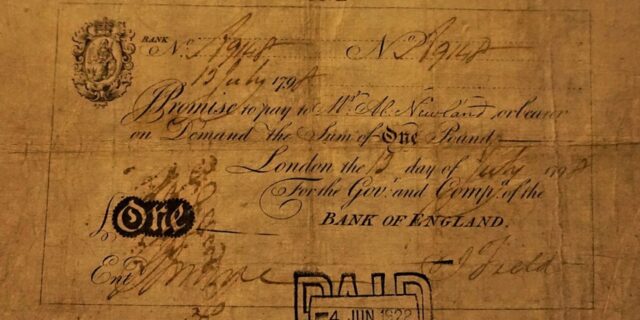 BANK
No. 2,8948 No. 2,8948
13 July 1798
I Promise to pay to Mr. Ab. Newland, or bearer
on Demand the Sum of One Pound
London the 13 day of July 1798
For the Govr. and Compa. of the
BANK OF ENGLAND.
£ One
Entd. J Field
PAID
4 JUN 1922